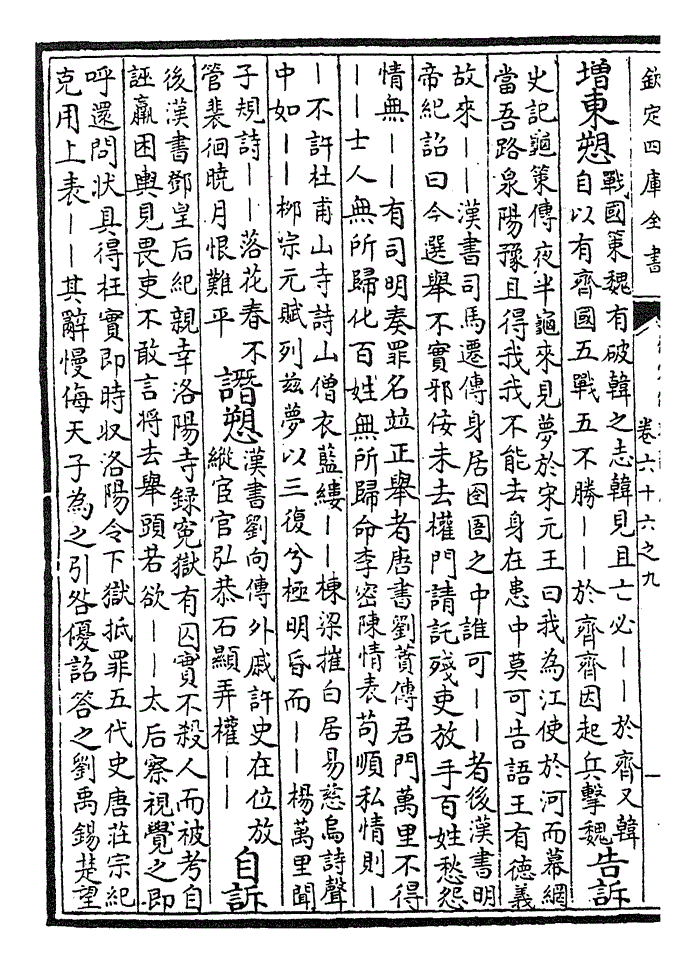 欽定四庫全書
卷六十六之九
增東愬
戰國策魏有破韓之志韓見且亡必——於齊又韓
自以有齊國五戰五不勝——於齊齊因起兵擊魏
告訴
史記龜策傳夜半龜來見夢於宋元王曰我為江使於河而幕網
當吾路泉陽豫且得我我不能去身在患中莫可告語王有德義
故來——漢書司馬遷傳身居囹圄之中誰可——者後漢書明
帝紀詔曰今選舉不實邪佞未去權門請託殘吏放手百姓愁怨
情無——有司明奏罪名竝正舉者唐書劉蕡傳君門萬里不得
——士人無所歸化百姓無所歸命李密陳情表苟順私情則—
—不許杜甫山寺詩山僧衣藍縷——棟梁摧白居易慈烏詩聲
中如——柳宗元賦列兹夢以三復兮極明昏而——楊萬里聞
子規詩——落花春不
管裴徊曉月恨難平
譖愬
漢書劉向傳外戚許史在位放
縱宦官弘恭石顯弄權——
自訴
後漢書鄧皇后紀親幸洛陽寺録寃獄有囚實不殺人而被考自
誣羸困輿見畏吏不敢言將去舉頭若欲——太后察視覺之即
呼還問狀具得枉實即時收洛陽令下獄抵罪五代史唐莊宗紀
克用上表——其辭慢侮天子為之引咎優詔答之劉禹錫楚望